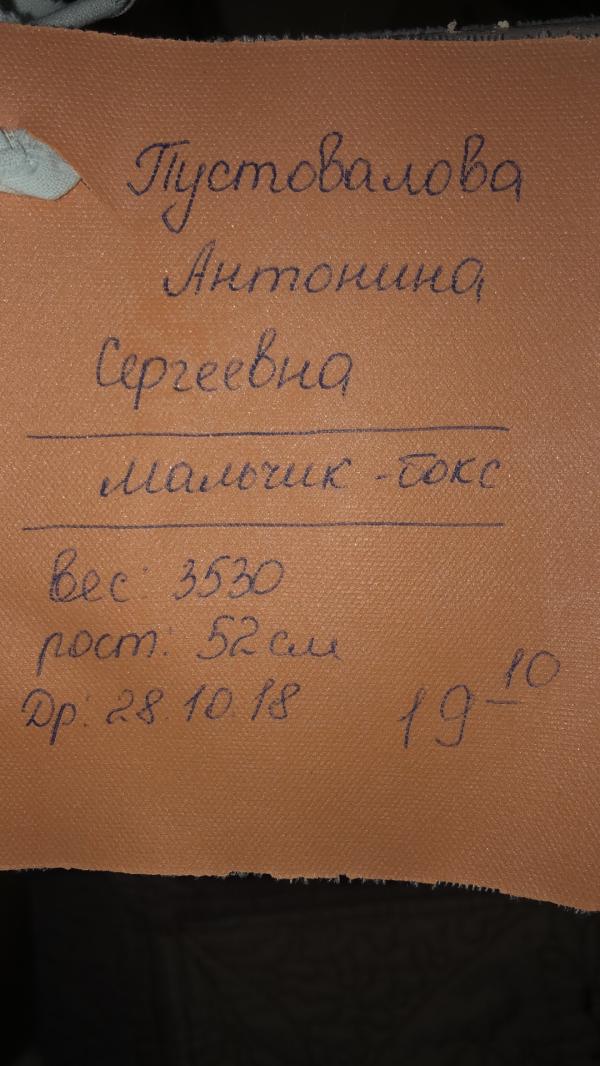 Пустовалова
Антонина
Сергеевна
мальчик - бокс
вес: 3530
рост: 52 см
Др: 28.10.18 19 10